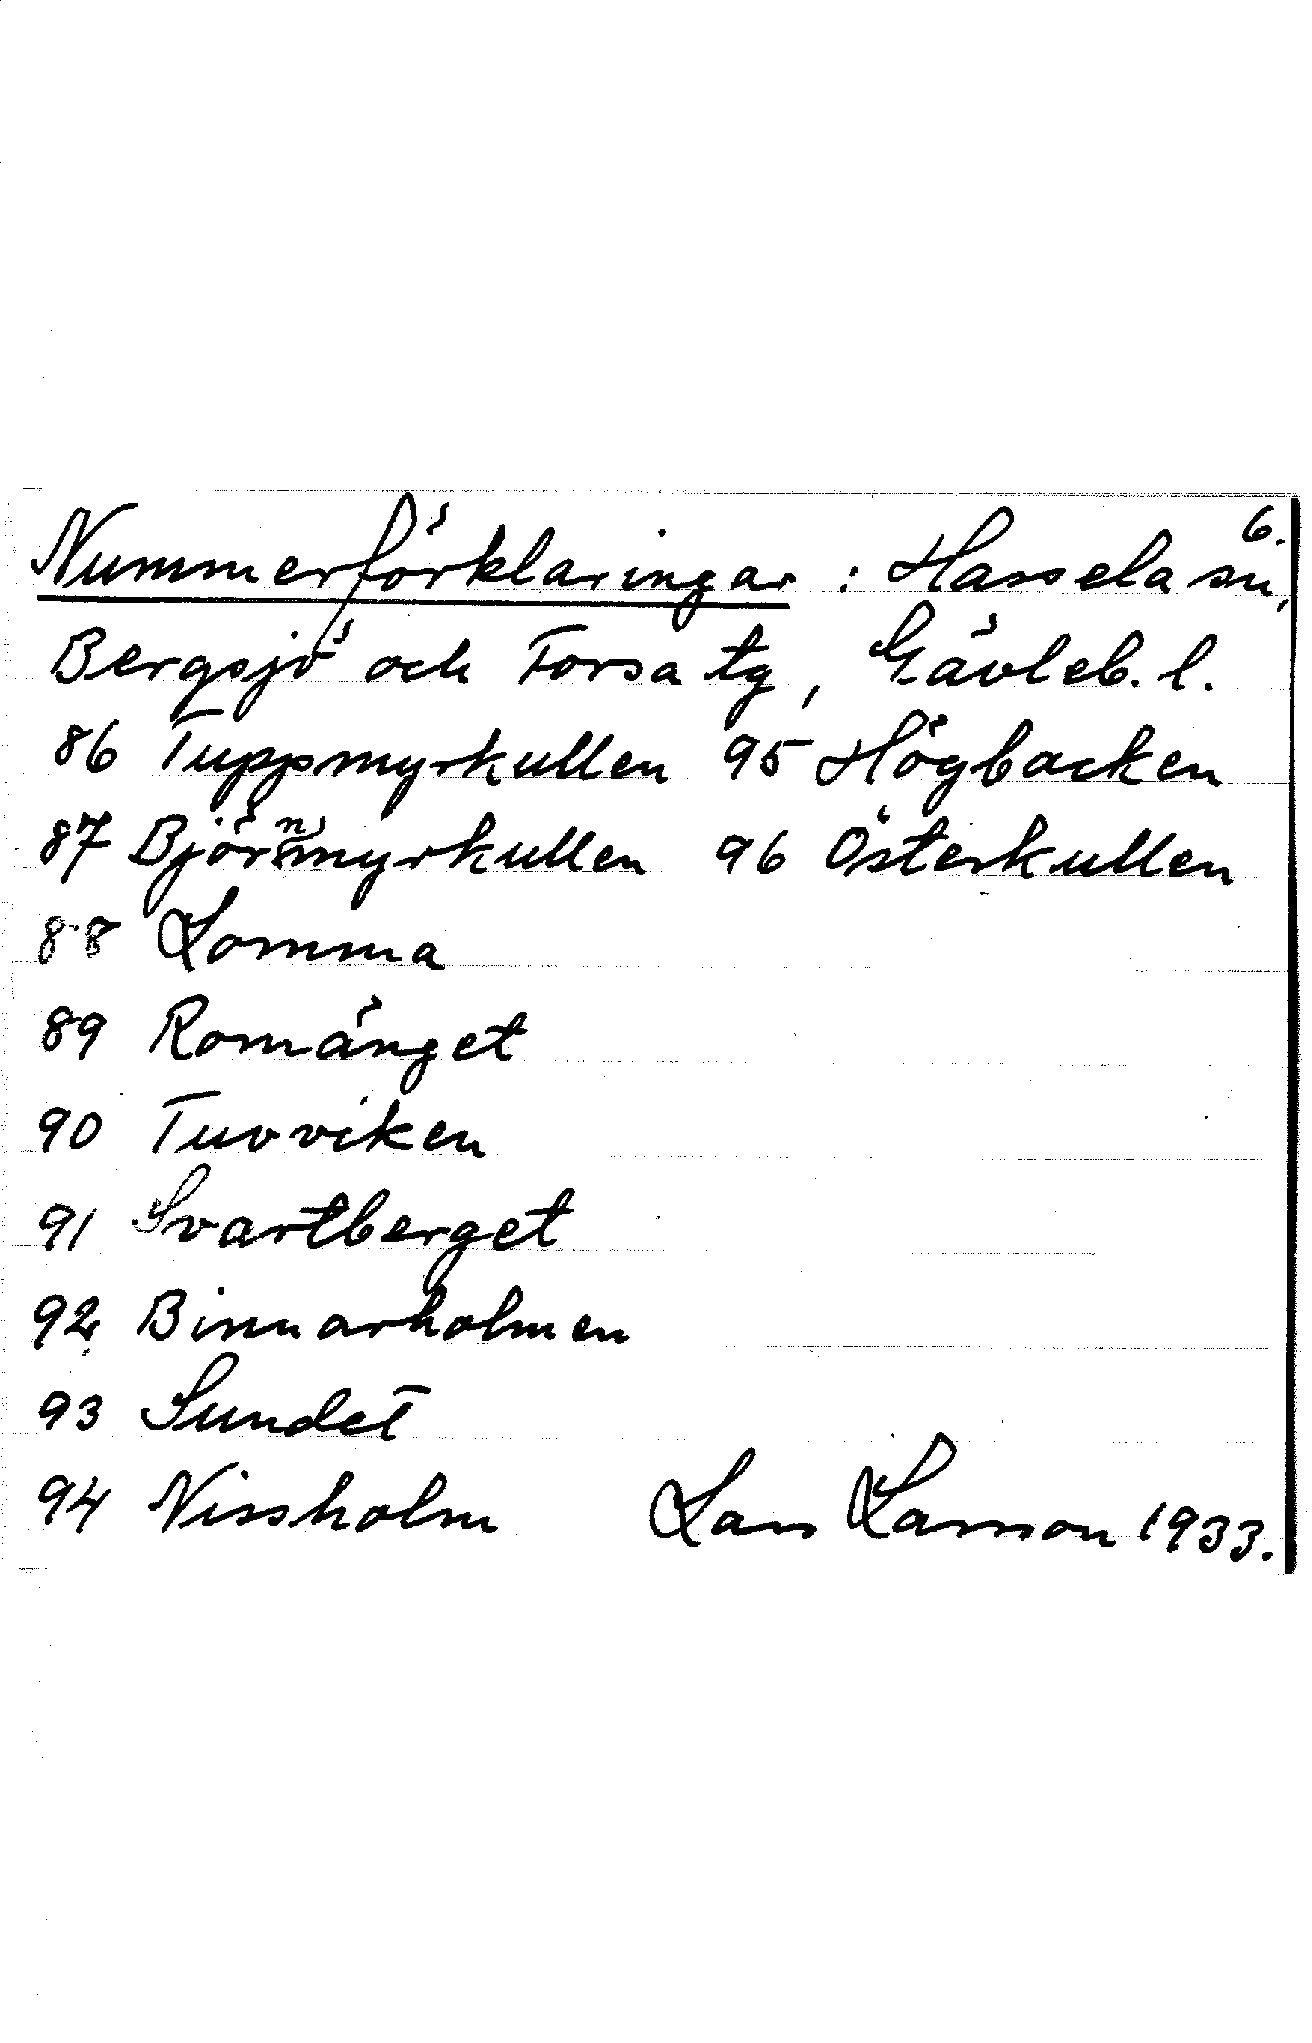 6.
Nummerförklaringar : Hassela sn,
Bergsjö och Forsa tg, Gävleb. l.
86 Tuppmyrkullen 95 Högbacken
87 Björnmyrkullen 96 Österkullen
88 Lomma
89 Romänget
90 Tuvviken
91 Svartberget
92 Binnarholmen
93 Sundet
94 Nissholm Lars Larsson 1933.